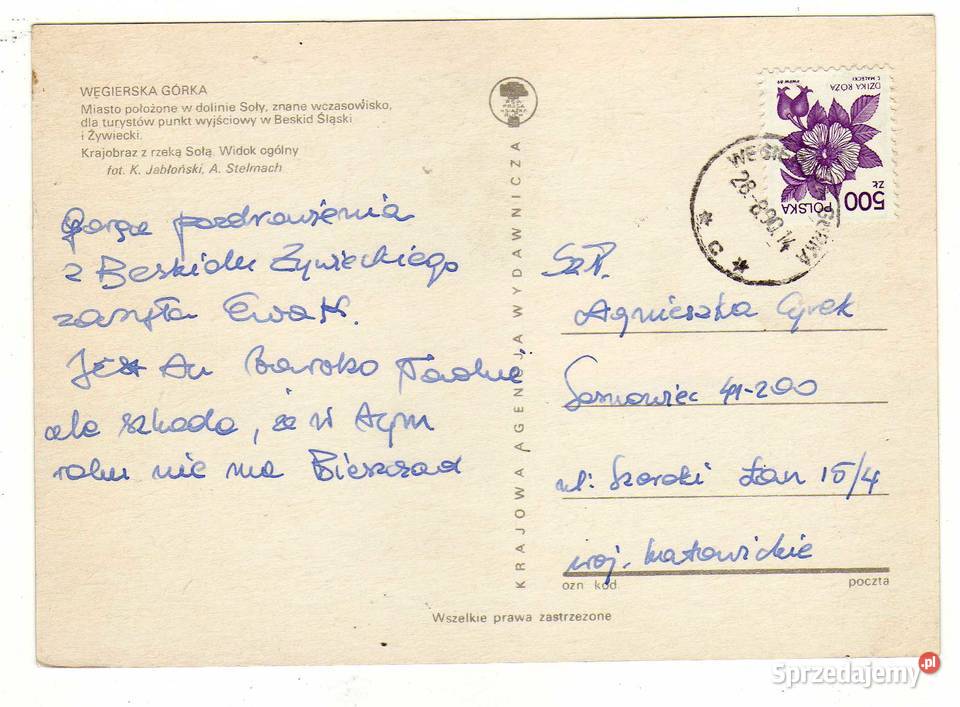 WĘGIERSKA GÓRKA
Miasto położone w dolinie Soły, znane wczasowisko,
dla turystów punkt wyjściowy w Beskid Śląski
i Żywiecki.
Krajobraz z rzeką Sołą. Widok ogólny
fot. K. Jabłoński, A. Stelmach
Gorące pozdrowienia
z Beskidu Żywieckiego
zasyła Ewa K.
Jest tu bardzo ładnie
ale szkoda, że w tym
roku nie ma Bieszczad
KRAJOWA AGENCJA WYDAWNICZA
DZIKA RÓŻA
T. MAŁECKI
PWPW 89
500 ZŁ
POLSKA
WĘGIE GÓRKA
28.-8.90.14
* C *
Sz.P.
Agnieszka Cyrek
Sosnowiec 41-200
ul. Szeroki Łan 15/4
woj. katowickie
ozn kod. poczta
Wszelkie prawa zastrzeżone
Sprzedajemy.pl